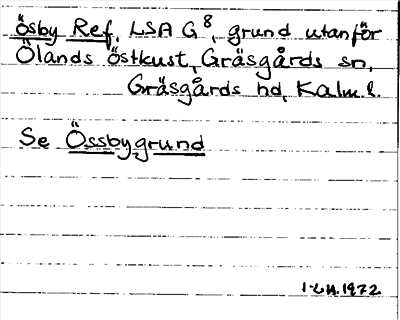 Ösby Ref, LSA G8, grund utanför
Ölands östkust, Gräsgårds sn,
Gräsgårds hd, Kalm. l.
Se Össbygrund
1972